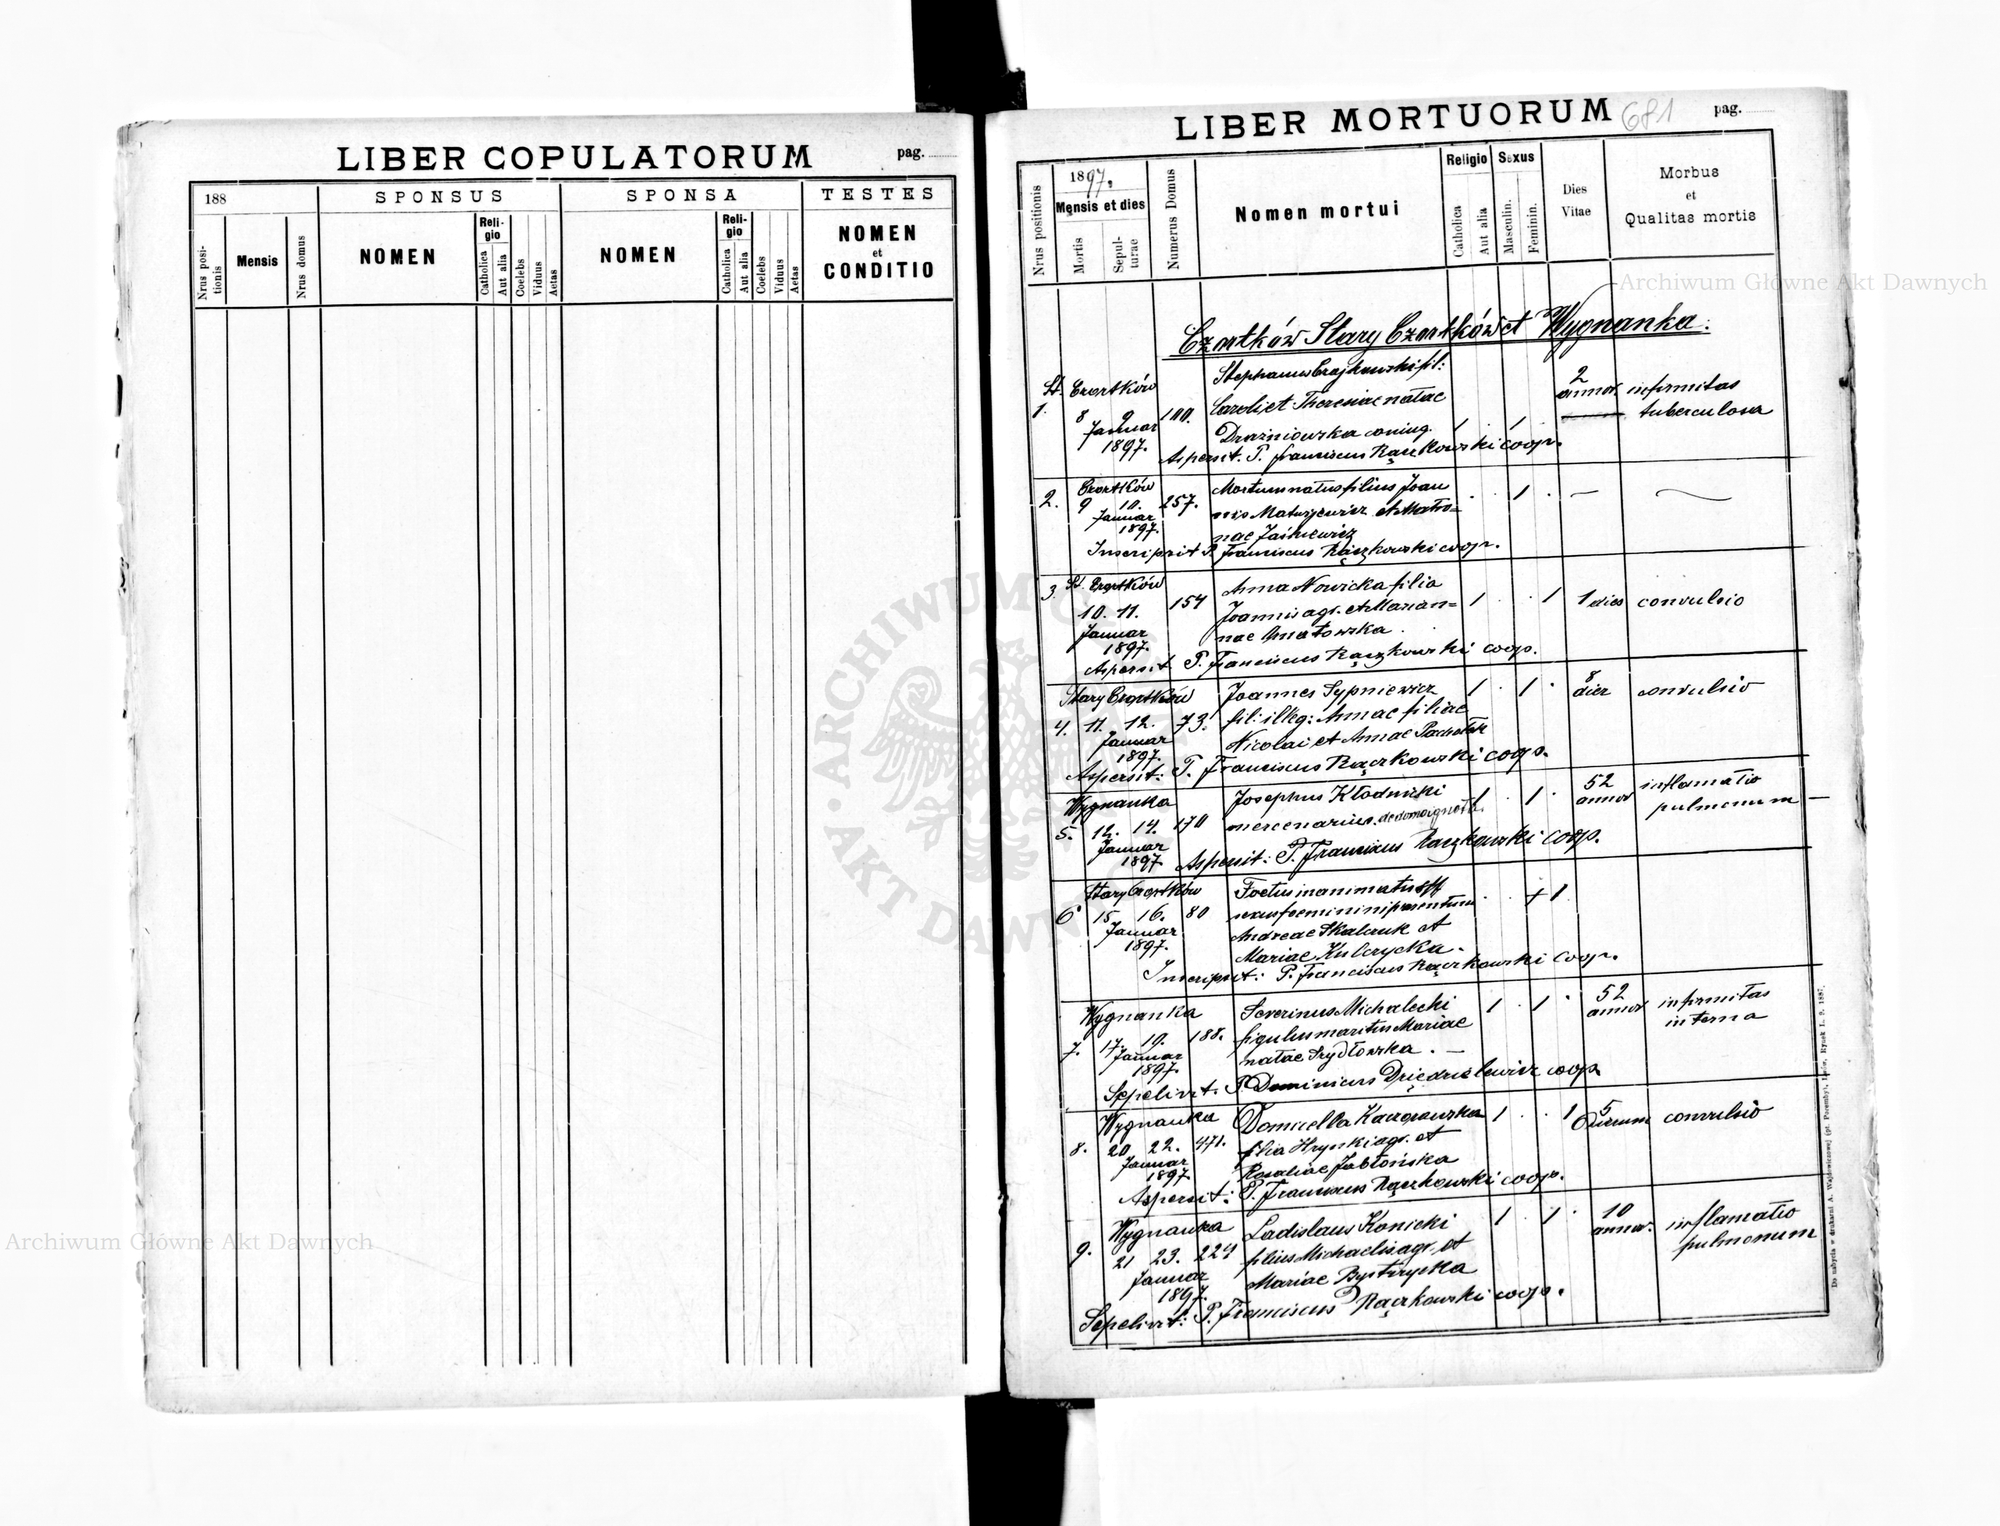 LIBER COPULATORUM
pag.
188
SPONSUS
SPONSA
TESTES
Nrus positionis
Mensis
Nrus domus
NOMEN
Religio
Catholica
Aut alia
Coelebs
Viduus
Aetas
NOMEN
Religio
Catholica
Aut alia
Coelebs
Viduus
Aetas
NOMEN
et
CONDITIO
LIBER MORTUORUM 681
pag.
Nrus positionis
1897.
Mensis et dies
Mortis
Sepulturae
Numerus Domus
Nomen mortui
Religio
Catholica
Aut alia
Sexus
Masculin.
Feminin.
Dies
Vitae
Morbus
et
Qualitas mortis
Czortków Stary Czortków et Wygnanka.
St. Czortków
1. 8 9 100.
Januar
1897.
Stephanus Czajkowski fil:
Caroli et Theresiae natae
Drazniowska coniug.
1 1
2
annor.
infirmitas
tuberculosa
Aspersit. P. Franciscus Rączkowski coop.
Czortków
2. 9 10. 257.
Januar
1897.
Mortuus natus filius Joan
nis Matwijewicz et Matro=
nae Jaśkiewicz
1 —
Inscripsit P. Franciscus Rączkowski coop.
St. Czortków
3. 10. 11. 154
Januar
1897.
Anna Nowicka filia
Joannis agr. et Marian=
nae
1 1
1 dies convulsio
Aspersit P. Franciscus Rączkowski coop.
Stary Czortków
4. 11. 12. 73.
Januar
1897.
Joannes Sypniewicz
fil: illeg: Annae filiae
Nicolai et Annae
1 1
8
dier convulsio
Aspersit: P. Franciscus Rączkowski coop.
Wygnanka
5. 12. 14. 170
Januar
1897.
Josephus Kłodnicki
mercenarius. de domo ignota.
1 1
52
annor
inflamatio
pulmonum
Aspersit: P. Franciscus Raczkowski coop.
Stary Czortków
6 15 16. 80
Januar
1897.
Foetus inanimatus
sexus foeminini parentum
Andreae Skalczuk et
Mariae Kulczycka.
+ 1
Inscripsit: P. Franciscus Rączkowski coop.
Wygnanka
7. 17. 19. 188.
Januar
1897.
Severinus Michalecki
figulus maritus Mariae
natae Szydłowska. —
1 1
52
annor
infirmitas
interna
Sepelivit. P. Dominicus coop
Wygnanka
8. 20 22. 471.
Januar
1897
Domicella
filia Hrynki agr. et
Rosaliae Jabłońska
1 1
5
dierum convulsio
Aspersit: P. Franciscus Rączkowski coop.
Wygnanka
9. 21 23. 224
Januar
1897.
Ladislaus Konicki
filius Michaelis agr. et
Mariae Bystrzycka
1 1
10
annor.
inflamatio
pulmonum
Sepelivit: P. Franciscus Rączkowski coop.
Do nabycia w drukarni A. Wajdowiczowej (pł. Poremby), Lwów, Rynek L. 9. 1887.
Archiwum Główne Akt Dawnych
Archiwum Główne Akt Dawnych
ARCHIWUM
AKT DAWNYCH